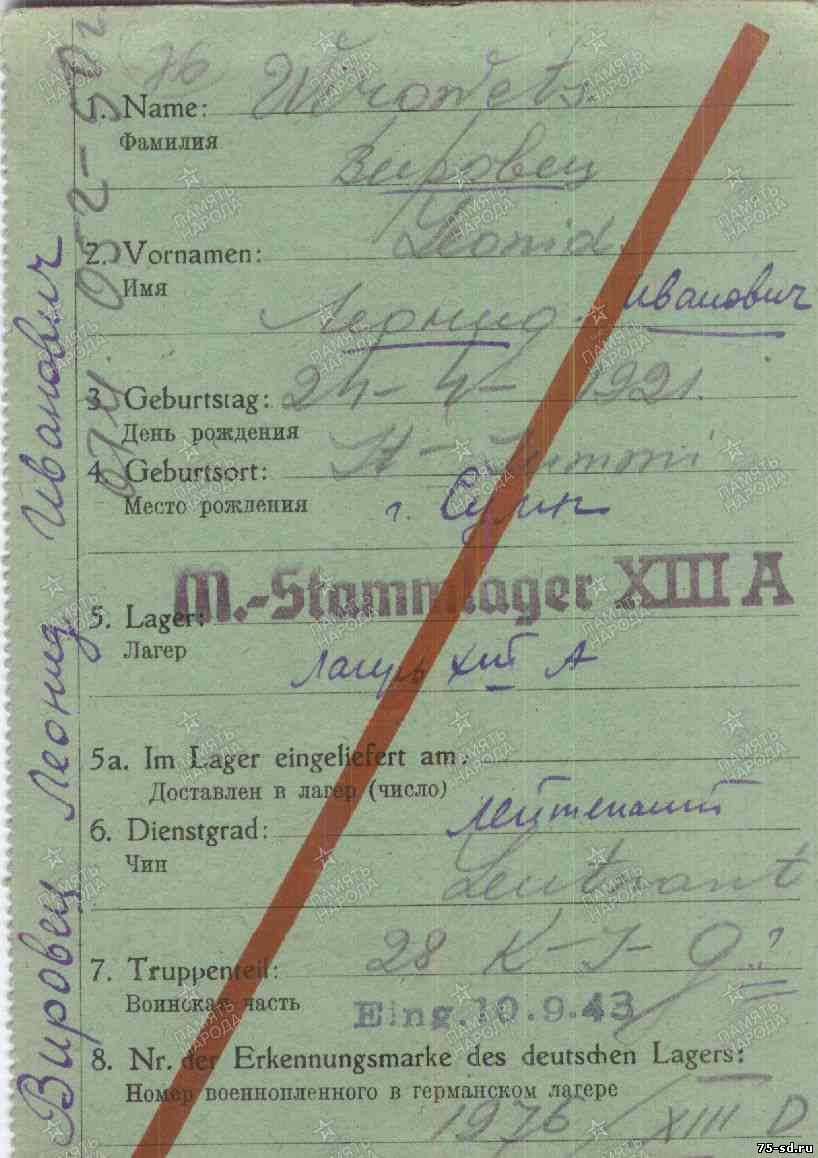 76
1. Name: Wirowets
Фамилия
Вировец
2. Vornamen: Leonid
Имя
Леонид. Иванович
3. Geburtstag: 24-4-1921.
День рождения
4. Geburtsort: St-
Место рождения
г. Сулин
M.-Stammlager XIII A
5. Lager:
Лагерь
Лагерь XIII A
5a. Im Lager eingeliefert am:
Доставлен в лагерь (число)
лейтенант
6. Dienstgrad:
Чин
Leutnant
7. Truppenteil: 28 K-J-
Воинская часть
Eing. 10.9.43
8. Nr. der Erkennungsmarke des deutschen Lagers:
Номер военнопленного в германском лагере
1976/XIII D
Вировец Леонид Иванович
ПАМЯТЬ НАРОДА
75-sd.ru